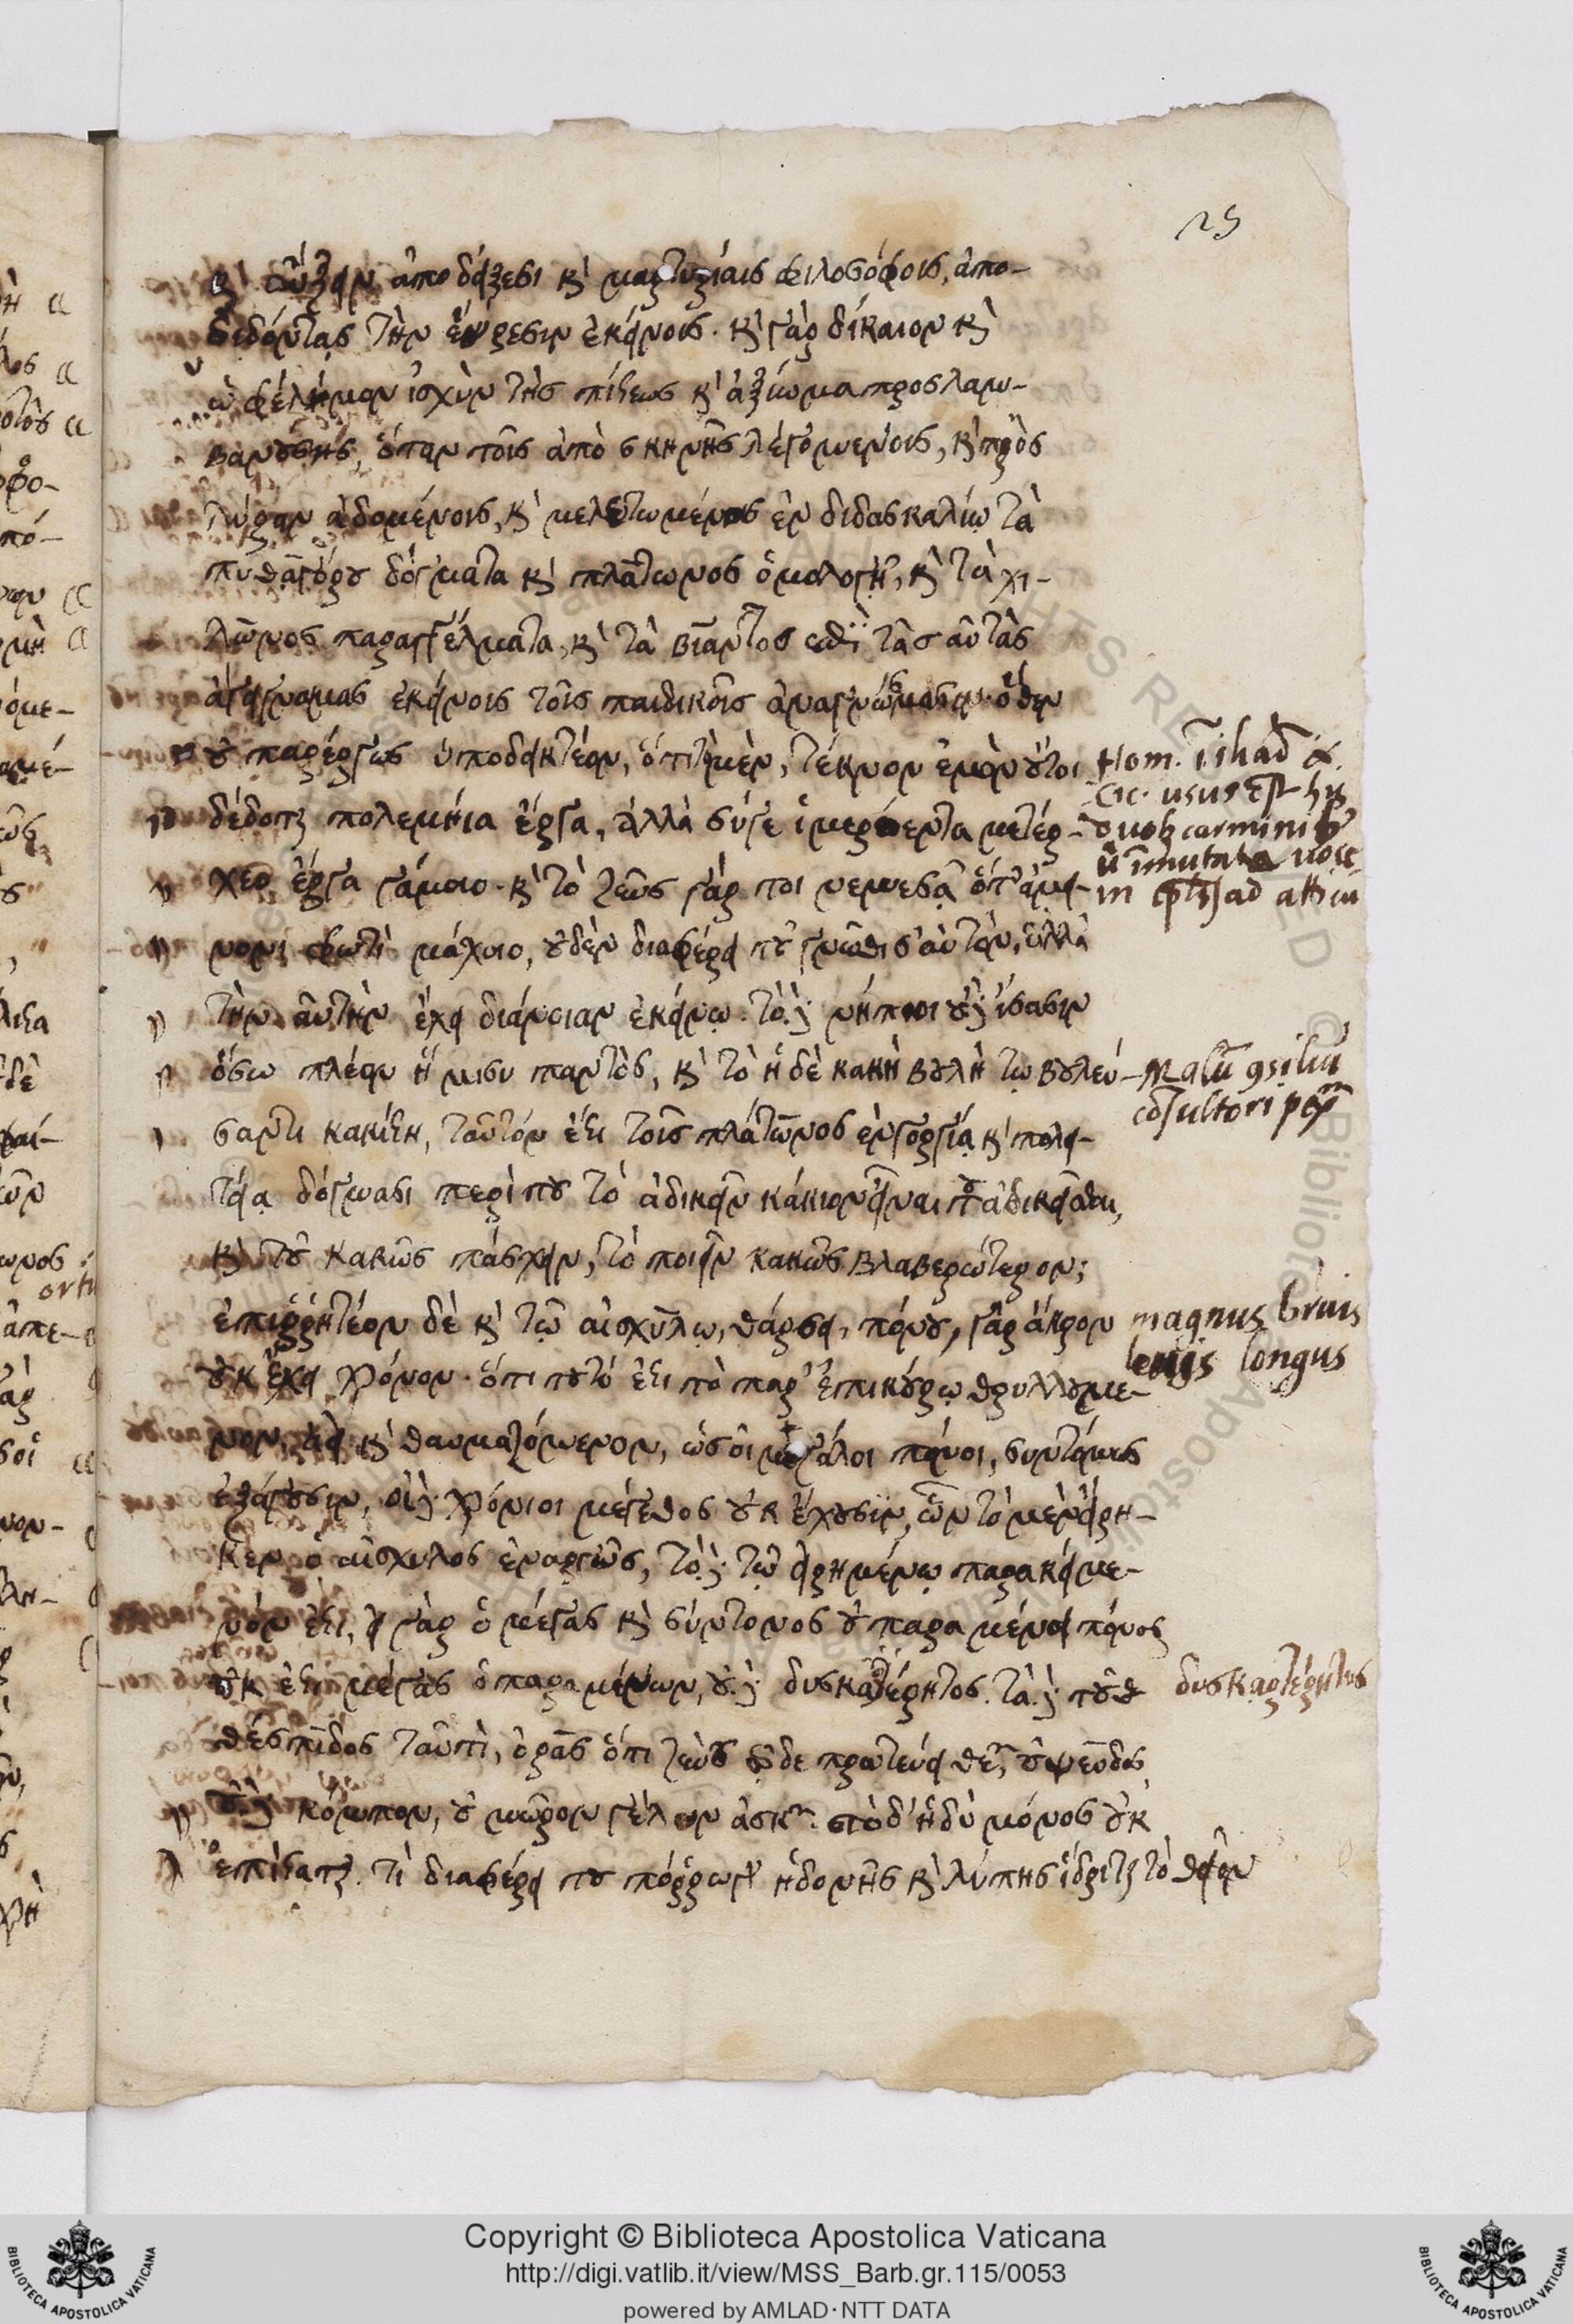 25
καὶ αὔξειν ἀποδείξεσι καὶ μαρτυρίαις φιλοσόφοις, ἀπο-
διδόντας τὴν εὕρεσιν ἐκείνοις. καὶ γὰρ δίκαιον καὶ
ὠφέλιμον ἰσχὺν τῆς πίστεως καὶ ἀξίωμα προσλαμ-
βανούσης, ὅταν τοῖς ἀπὸ σκηνῆς λεγομένοις, καὶ πρὸς
λύραν ᾀδομένοις, καὶ μελετωμένοις ἐν διδασκαλίῳ τὰ
πυθαγόρου δόγματα καὶ πλάτωνος ὁμολογῇ, καὶ τὰ χί-
λωνος παραγγέλματα, καὶ τὰ βίαντος ἐπὶ τὰς αὐτὰς
ἄγει γνώμας ἐκείνοις τοῖς παιδικοῖς ἀναγνώσμασιν. ὅθεν
οὐ παρέργως ὑποδεικτέον, ὅτι τὸ μὲν, τέκνον ἐμὸν οὔτοι
δέδοται πολεμήϊα ἔργα, ἀλλὰ σύγε ἱμερόεντα μετέρ-
χεο ἔργα γάμοιο. καὶ τὸ ζεῦς γάρ τοι νεμεσᾷ ὅτ' ἀμεί-
νονι φωτὶ μάχοιο, οὐδὲν διαφέρει τοῦ γνῶθι σαυτόν, ἀλλὰ
τὴν αὐτὴν ἔχει διάνοιαν ἐκείνῳ. τὸ δὲ νήπιοι οὐδὲ ἴσασιν
ὅσω πλέον ἥμισυ παντὸς, καὶ τὸ ἡ δὲ κακὴ βουλὴ τῷ βουλεύ-
σαντι κακίστη, ταὐτόν ἐστι τοῖς πλάτωνος ἐν γοργίᾳ καὶ πολι-
τείᾳ δόγμασι περὶ τοῦ τὸ ἀδικεῖν κάκιον εἶναι τοῦ ἀδικεῖσθαι,
καὶ τοῦ κακῶς πάσχειν, τὸ ποιεῖν κακῶς βλαβερώτερον;
ἐπιρρητέον δὲ καὶ τῷ αἰσχύλω, θάρσει, πόνου, γὰρ ἄκρον
οὐκ ἔχει χρόνον. ὅτι τοῦτό ἐστι τὸ παρ' ἐπικούρῳ θρυλλούμε-
νον, ἀεὶ καὶ θαυμαζόμενον, ὡς οἱ μεγάλοι πόνοι, συντόμως
ἐξάγουσιν, οἱ δὲ χρόνιοι μέγεθος οὐκ ἔχουσιν, ὧν τὸ μὲν εἴρη-
κεν ὁ αἰσχύλος ἐναργῶς, τὸ δὲ τῷ εἰρημένῳ παρακείμε-
νόν ἐστι, εἰ γὰρ ὁ μέγας καὶ σύντονος οὐ παραμένει πόνος
οὐκ ἔστι μέγας ὁ παραμένων, οὐδὲ δυσκατέρητος. τὰ δὲ τοῦ
θέσπιδος ταυτὶ, ὁρᾶς ὅτι ζεὺς τῶδε πρωτεύει θεῶν, οὐ ψεῦδος
οὐδὲ κόμπον, οὐ μῶρον γέλων ἀσκῶν. τὸ δ' ἡδὺ μόνος οὐκ
ἐπίσταται. τί διαφέρει τοῦ πόρρω γὰρ ἡδονῆς καὶ λύπης ἵδρυται τὸ θεῖον
Hom. iliad
Cic. usus est his
duob carminib
immutata voce
in ad atticū
Malū cōsiliū
cōsultori
magnus brevis
levis longus
δυσκαρτέρητος
Copyright © Biblioteca Apostolica Vaticana
http://digi.vatlib.it/view/MSS_Barb.gr.115/0053
powered by AMLAD·NTT DATA
BIBLIOTECA APOSTOLICA VATICANA
BIBLIOTECA APOSTOLICA VATICANA